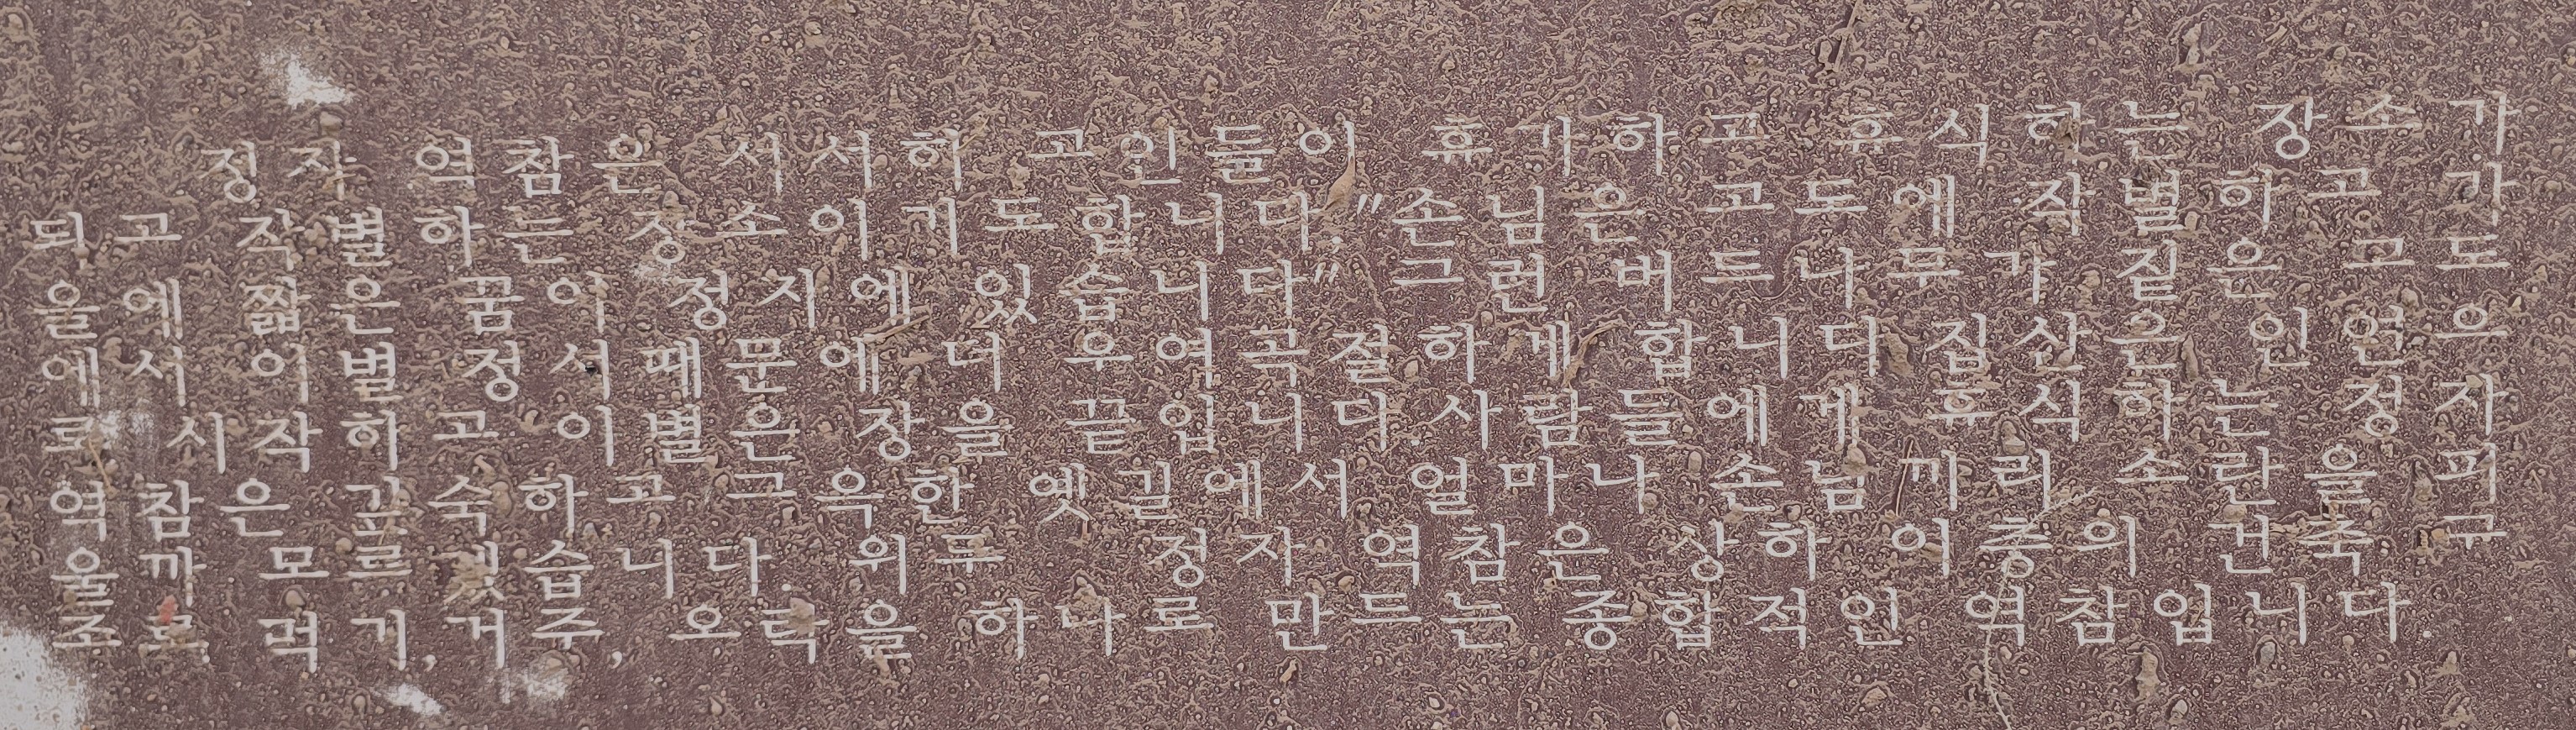 정자 역참은 서서히 고인들이 휴기하고 휴식하는 장소가
되고 작별하는 장소이기도합니다."손님은 고도에 작별하고 가
을에 짧은 꿈이 정지에 있습니다" 그런 버드나무가 짙은 고도
에서 이별 정서때문에 더 우여곡절하게 합니다 집산은 인연으
로 시작하고 이별은 장을 끝입니다.사람들에게 휴식하는 정자
역참은 깊숙하고 그윽한 옛길에서 얼마나 손님끼리 소란을 피
울까 모르겠습니다. 위두 정자 역참은 상하 이층의 건축 규
조로 먹기,거주, 오락을 하나로 만드는 종합적인 역참입니다.